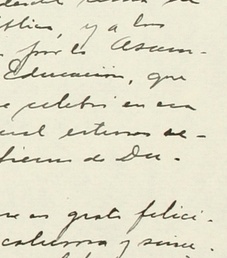 blica, y a los
por la Asam-
Educación, que
se celebró en esa
estuvo a e-
bierno de Du-
es grato felici-
calurosa y since-